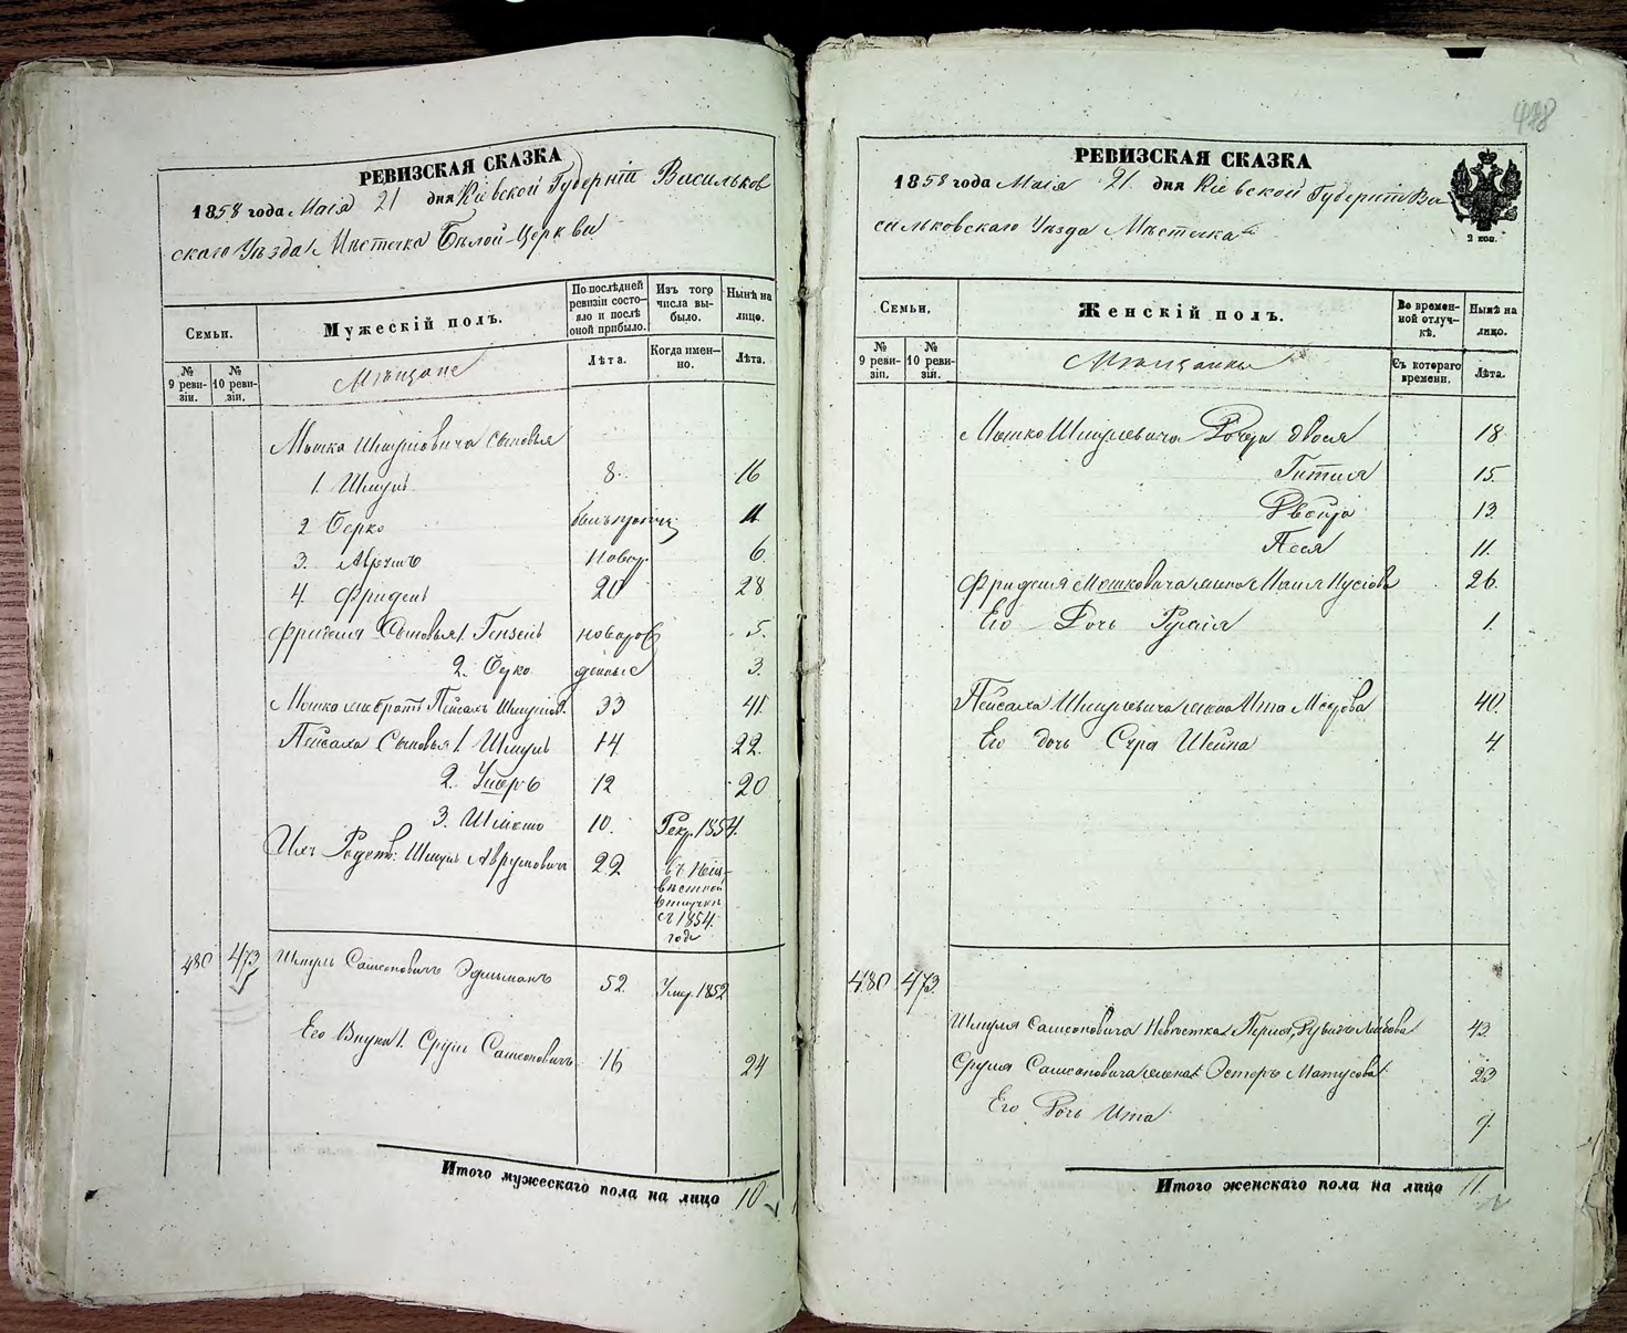 РЕВИЗСКАЯ СКАЗКА
1858 года Маія 21 дня Кіевской Губерніи Васильков
скаго Уѣзда Мѣстечка Бѣлой-Церкви
Семьи.
Мужескій полъ.
По послѣдней ревизіи состояло и послѣ оной прибыло.
Изъ того числа выбыло.
Нынѣ на лицо.
№ 9 ревизіи.
№ 10 ревизіи.
Мѣщане
Лѣта.
Когда именно.
Лѣта.
Мошка Шмулевича сыновья
1. Шмуль 8 16
2 Берко 11
3. Аврумъ Новор. 6
4. Фридель 20 28
Фриделя Сыновья 1. новорож 5.
2. Берко денные 3.
Мошка братъ Пейсахъ Шмулев. 33 41.
Пейсаха Сыновья 1. Шмуль 14 22.
2. Ушеръ 12 20
3. 10. Рекр. 1854.
Ихъ Родств: Шмуль Аврумовичъ 22 въ неиз-
вѣстной
отлучкѣ
съ 1854.
года
480 473 Шмуль Самсоновичъ Эдельманъ 52. Умер. 1852
Его Внуки 1. Сруль Самсоновичъ 16 24
Итого мужескаго пола на лицо 10
478
РЕВИЗСКАЯ СКАЗКА
1858 года Маія 21. дня Кіевской Губерніи Ва
сильковскаго Уѣзда Мѣстечка
2 коп.
Семьи.
Женскій полъ.
Во временной отлучкѣ.
Нынѣ на лицо.
№ 9 ревизіи.
№ 10 ревизіи.
Мѣщанки
Съ котораго времени.
Лѣта.
Мошко Шмулевича Дочери Двося 18
Гитля 15.
Двойра 13
Песя 11.
Фриделя Мошковича жена 26.
Его Дочь 1.
Пейсаха Шмулевича жена Ита 40.
Его дочь Сура Шейна 4
480 473.
Шмуля Самсоновича Невѣстка Перля Лейбова 43.
Сруля Самсоновича жена Эстеръ Матусова 23
Его Дочь Ита
Итого женскаго пола на лицо 11.